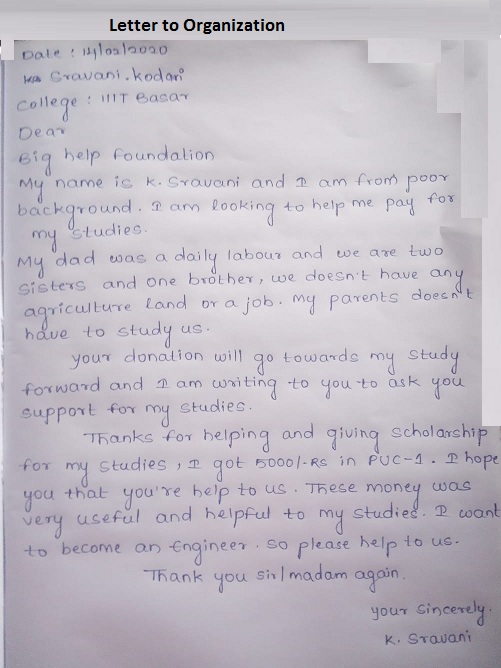 Letter to Organization
Date : 14/02/2020
Sravani.kodari
College : IIIT Basar
Dear
Big help foundation
My name is K. Sravani and I am from poor
background. I am looking to help me pay for
my studies.
My dad was a daily labour and we are two
sisters and one brother, we doesn't have any
agriculture land or a job. My parents doesn't
have to study us.
your donation will go towards my study
forward and I am writing to you to ask you
support for my studies.
Thanks for helping and giving scholarship
for my studies, I got 5000/-Rs in PUC-1. I hope
you that you're help to us. These money was
very useful and helpful to my studies. I want
to become an Engineer. so please help to us.
Thank you sir/madam again.
your sincerely.
K. Sravani